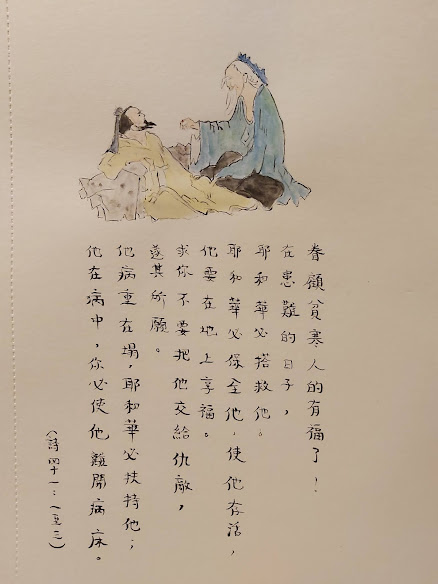 眷顧貧寒人的有福了！
在患難的日子，
耶和華必搭救他。
耶和華必保全他，使他存活，
他要在地上享福。
求你不要把他交給仇敵，
遂其所願。
他病重在榻，耶和華必扶持他；
他在病中，你必使他離開病床。
（詩四十一：一至三）